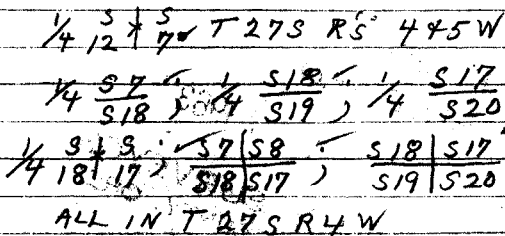 1/4 S 12 | S 7 T 27 S R'S 4 & 5 W
1/4 S7/S18 ; 1/4 S18/S19 ; 1/4 S17/S20
1/4 S 18 | S 17 ; S7|S8/S18|S17 ; S18|S17/S19|S20
ALL IN T 27 S R 4 W